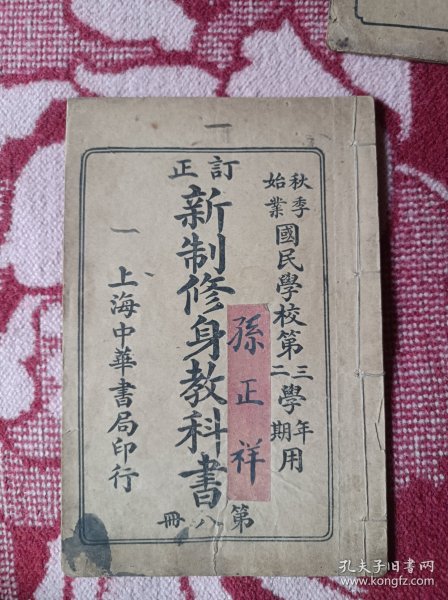 一
訂正
秋季始業
國民學校第三學年第二學期用
新制修身教科書
孫正祥
第八冊
一
上海中華書局印行
孔夫子旧书网
www.kongfz.com